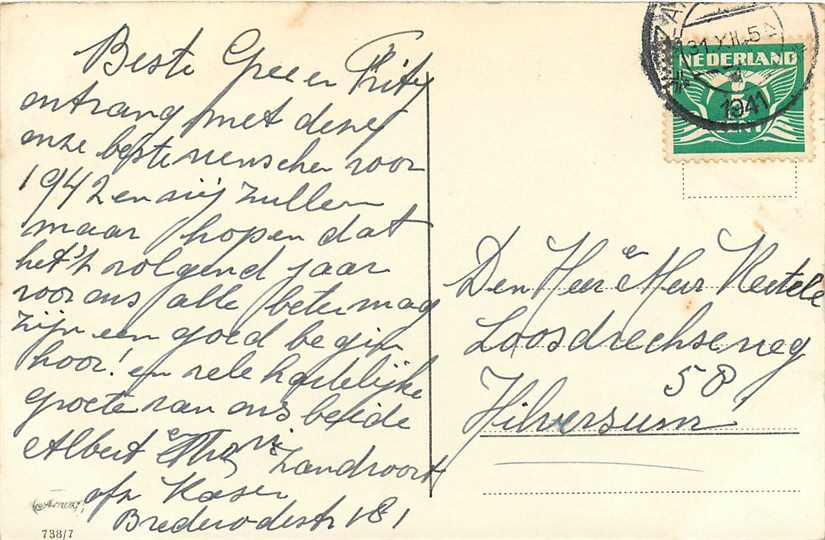 Beste Gree en Frits
ontvang met deze
onze beste wenschen voor
1942 en wij zullen
maar hopen dat
het 't volgend jaar
voor ons alle beter mag
zijn een goed begin
hoor! en vele hartelijke
Groeten van ons beide
Albert en
Zandvoort
Brederodestr 181
738/7
31 XII 5
1941
NEDERLAND
5
CENT
Den Heer & Mevr
Loosdrechseweg
58
Hilversum